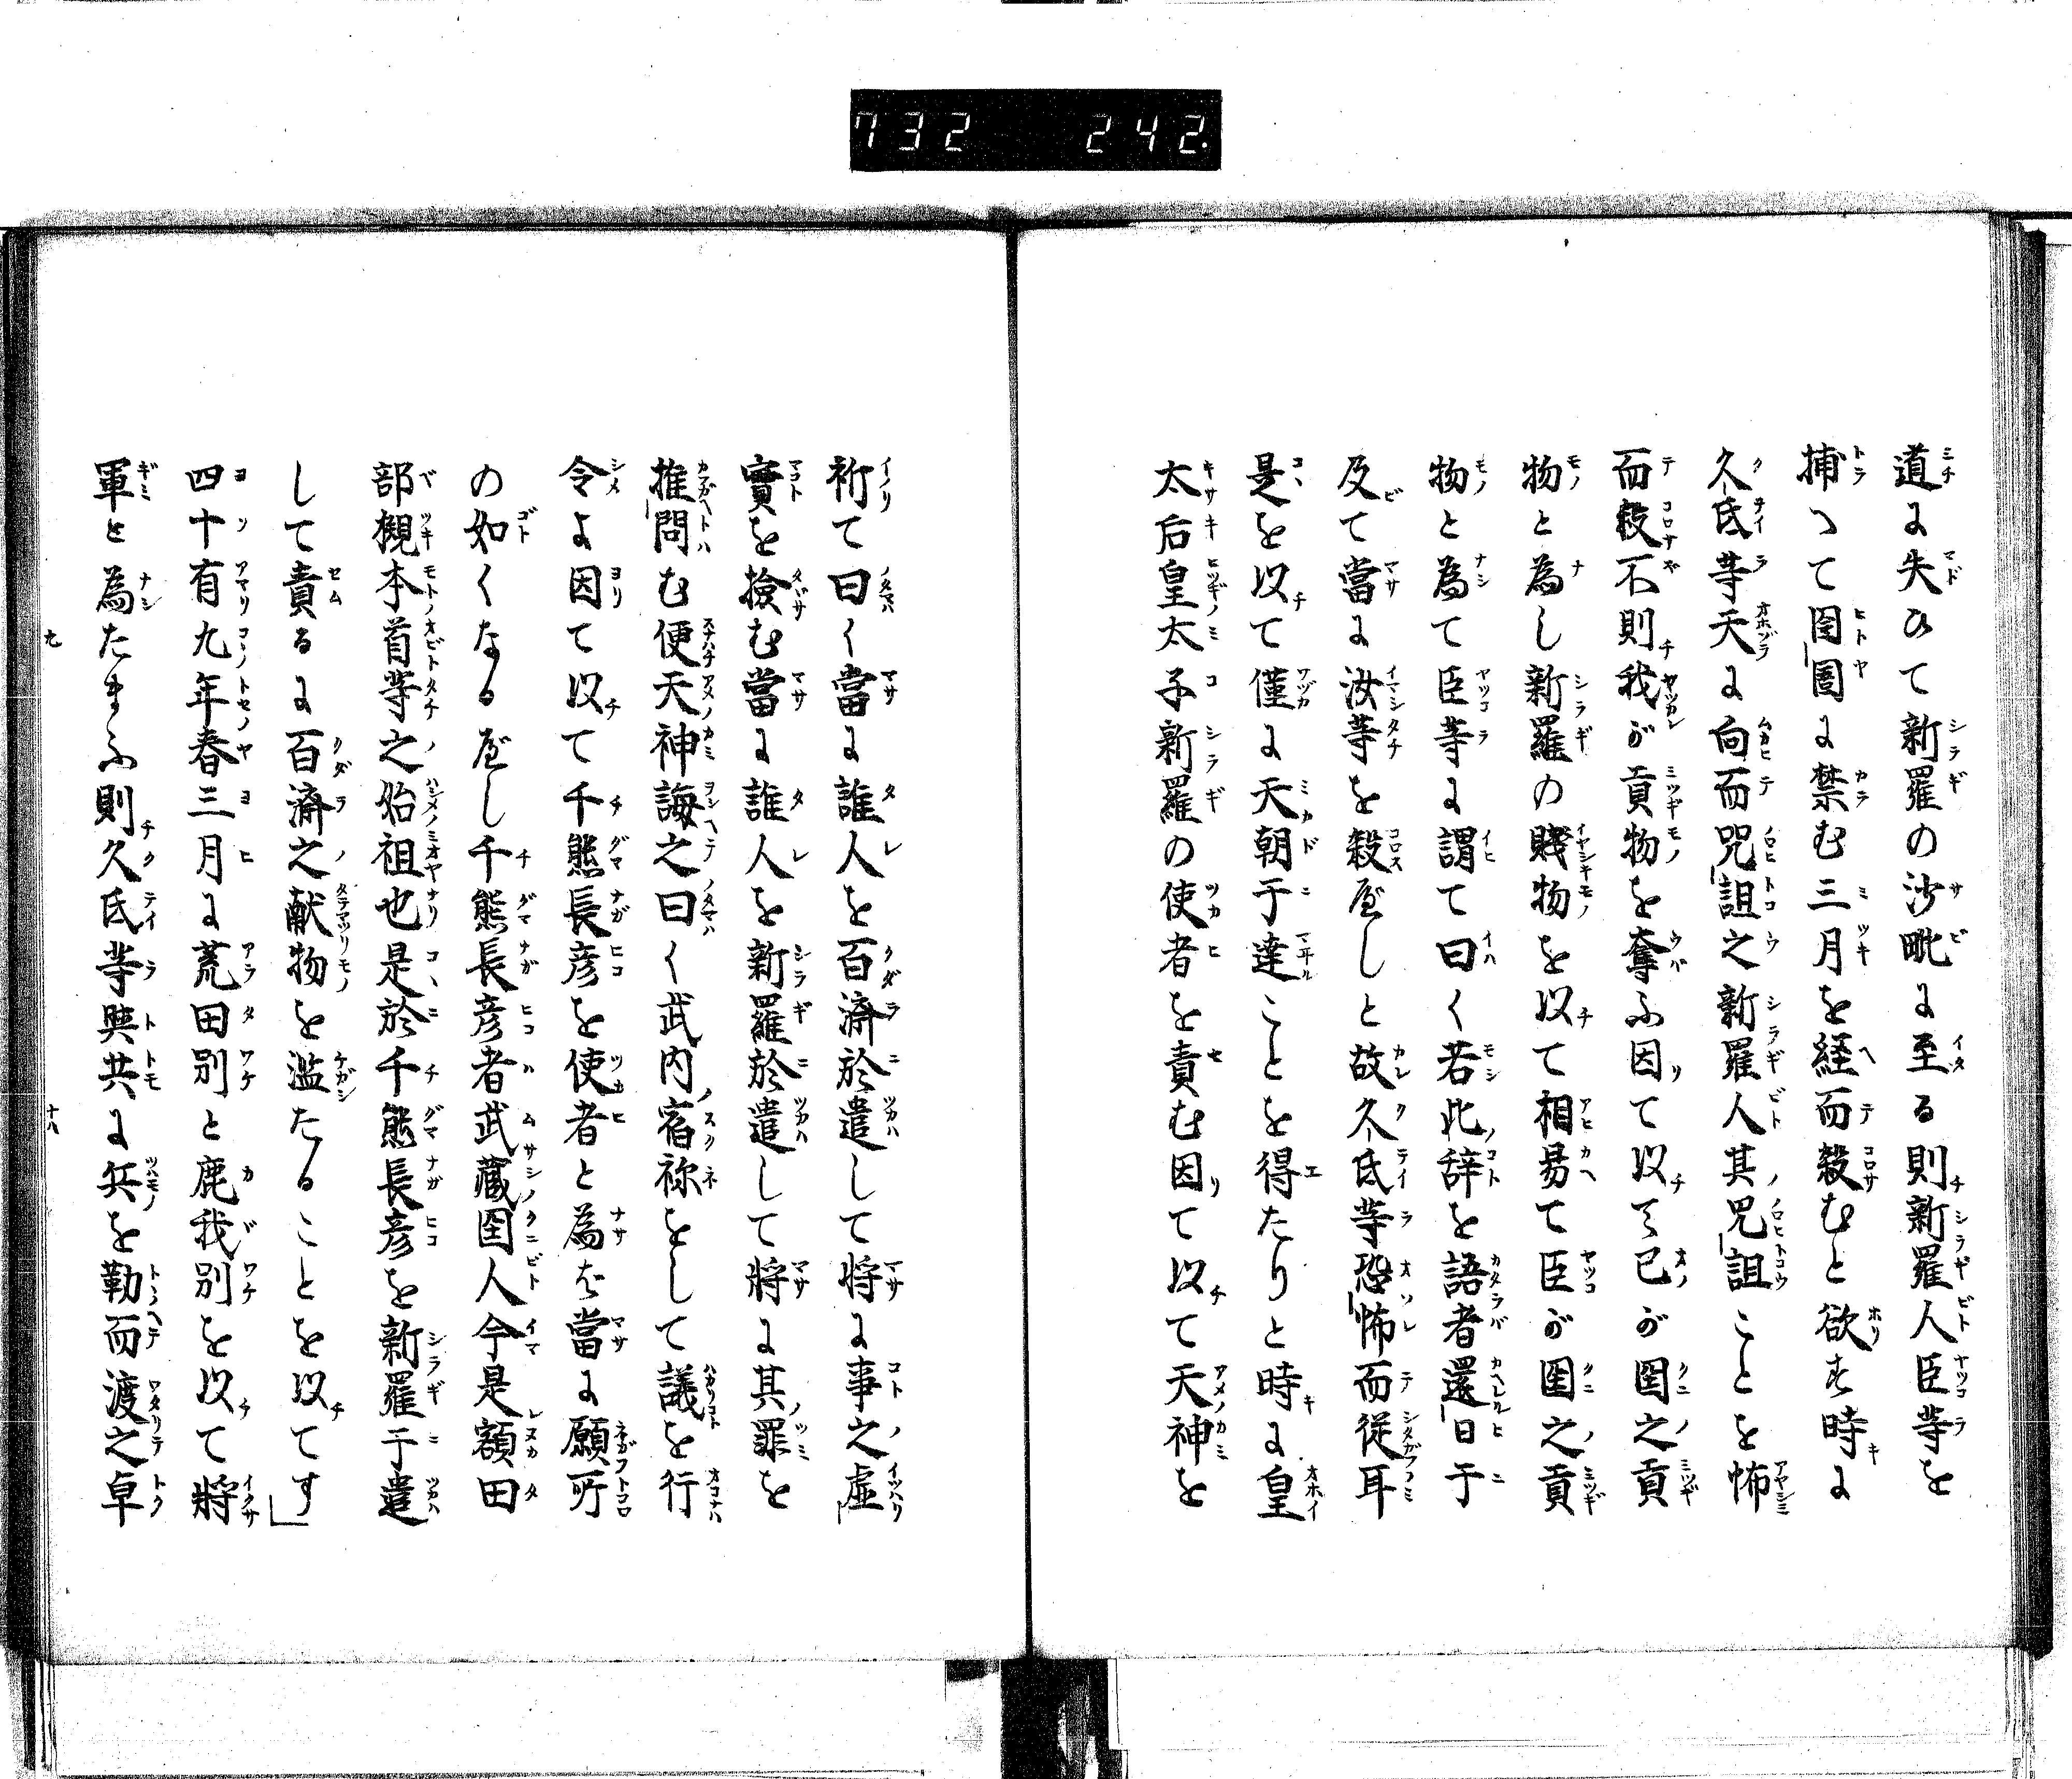 732 242.
道に失ひて新羅の沙毗に至る則新羅人臣等を
捕へて囹圄に禁む三月を経而殺むと欲す時に
久氐等天に向而咒詛之新羅人其咒詛ことを怖
而殺不則我が貢物を奪ふ因て以て己が国之貢
物と為し新羅の賤物を以て相易て臣が国之貢
物と為て臣等に謂て曰く若此辞を語者還日于
及て當に汝等を殺すべしと故久氐等恐怖而従耳
是を以て僅に天朝于達ことを得たりと時に皇
太后皇太子新羅の使者を責む因て以て天神を
祈て曰く當に誰人を百済於遣して将に事之虚
實を撿む當に誰人を新羅於遣して将に其罪を
推問む便天神誨之曰く武内宿祢をして議を行
令よ因て以て千熊長彦を使者と為ば當に願所
の如くなるべし千熊長彦者武蔵国人今是額田
部槻本首等之始祖也是於千熊長彦を新羅于遣
して責るに百済之献物を濫たることを以てす」
四十有九年春三月に荒田別と鹿我別を以て将
軍と為たまふ則久氐等與共に兵を勒而渡之卓
九 十八